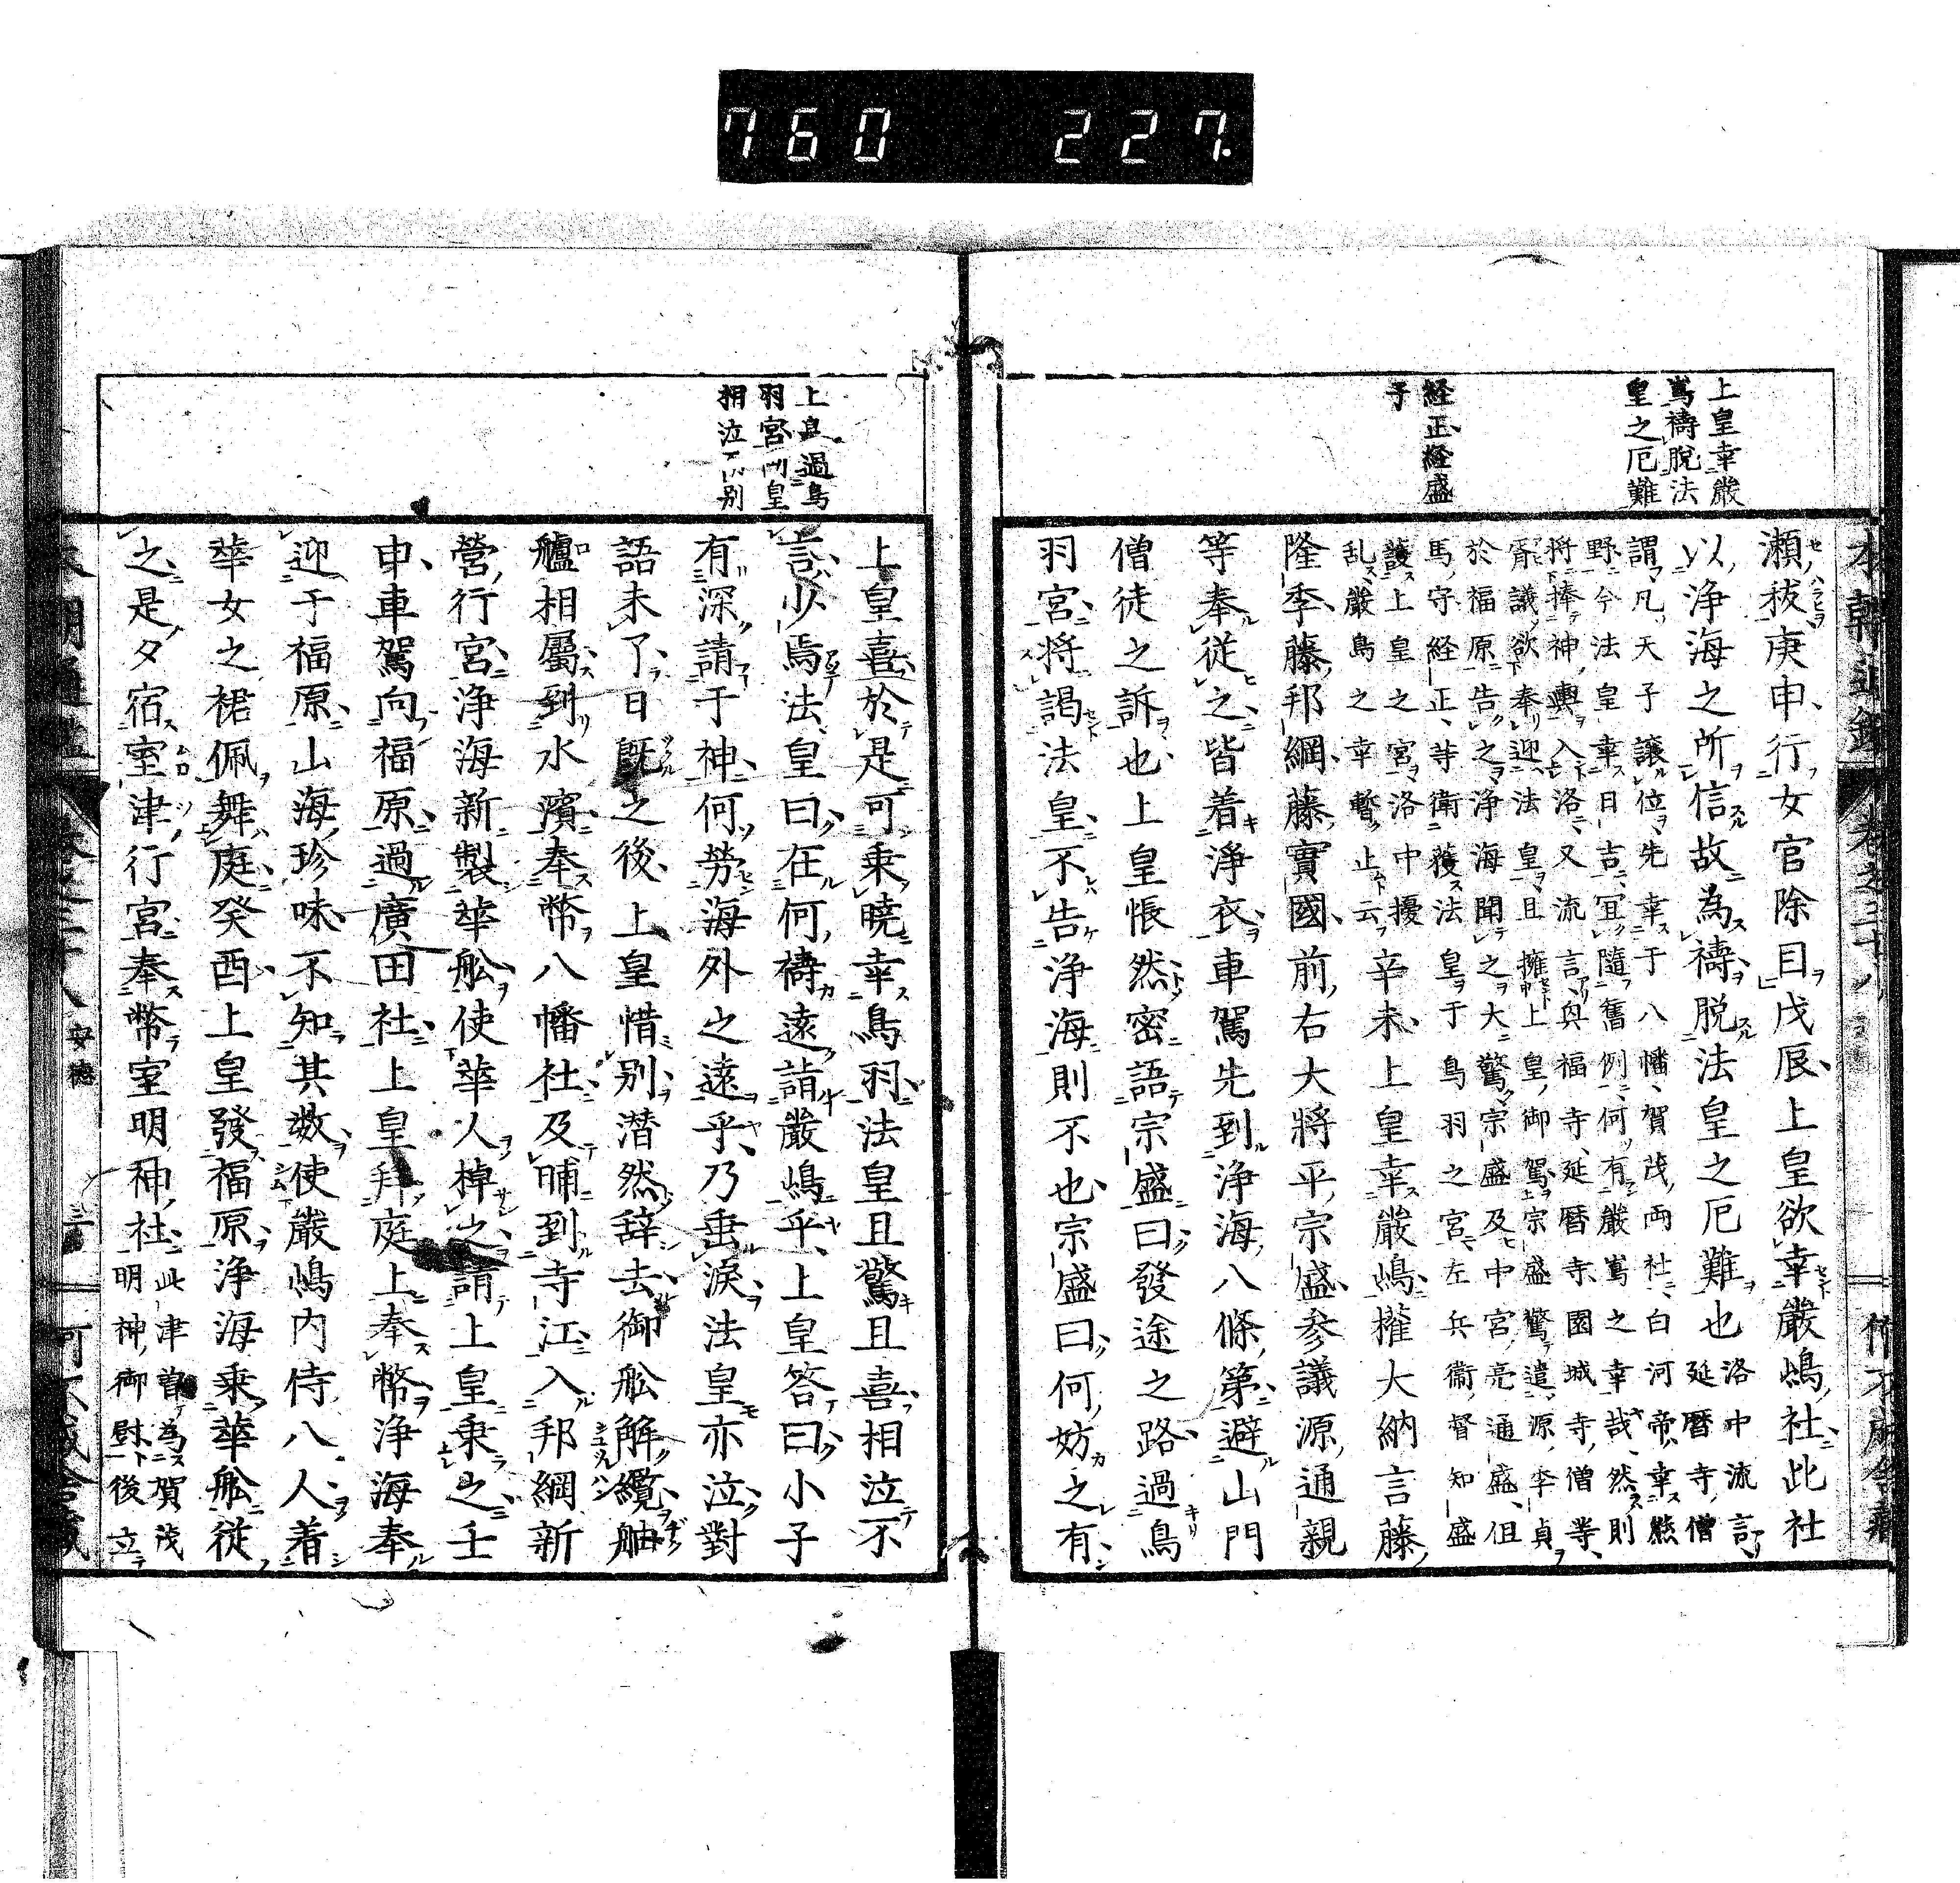 760 227.
上皇幸嚴
嶌禱脱法
皇之厄難
経正経盛
子
瀬秡庚申行女官除目戊辰上皇欲幸嚴嶋社此社
以浄海之所信故為禱脱法皇之厄難也
洛中流言
延暦寺僧
謂凡天子讓位先幸于八幡賀茂両社白河帝幸熊
野今法皇幸日吉宜隨舊例何有嚴嶌之幸哉然則
将捧神輿入洛又流言與福寺延暦寺園城寺僧等
議欲奉迎法皇且擁上皇御駕宗盛驚遣源季貞
於福原告之浄海聞之大驚宗盛及中宮亮通盛但
馬守経正等衛護法皇于鳥羽之宮左兵衞督知盛
護上皇之宮洛中擾
乱嚴島之幸暫止云
辛未上皇幸嚴嶋權大納言藤
隆季藤邦綱藤實國前右大將平宗盛参議源通親
等奉従之皆着浄衣車駕先到浄海八條第避山門
僧徒之訴也上皇悵然密語宗盛曰發途之路過鳥
羽宮将謁法皇不告浄海則不也宗盛曰何妨之有
上皇過鳥
羽宮法皇
相泣而別
上皇喜於是可乗曉幸鳥羽法皇且驚且喜相泣不
言少焉法皇曰在何禱遠詣嚴嶋乎上皇答曰小子
有深請于神何勞海外之遠乎乃垂淚法皇亦泣對
語未了日既之後上皇惜别潜然辞去御舩解纜舳
艫相屬到水濱奉幣八幡社及晡到寺江入邦綱新
營行宮浄海新製華舩使華人棹之請上皇乗之壬
申車駕向福原過廣田社上皇拜庭上奉幣浄海奉
迎于福原山海珍味不知其数使嚴嶋内侍八人着
華女之裙佩舞庭癸酉上皇發福原浄海乗華舩従
之是夕宿室津行宮奉幣室明神社
此津昔為賀茂
明神御慰後立
安徳
三